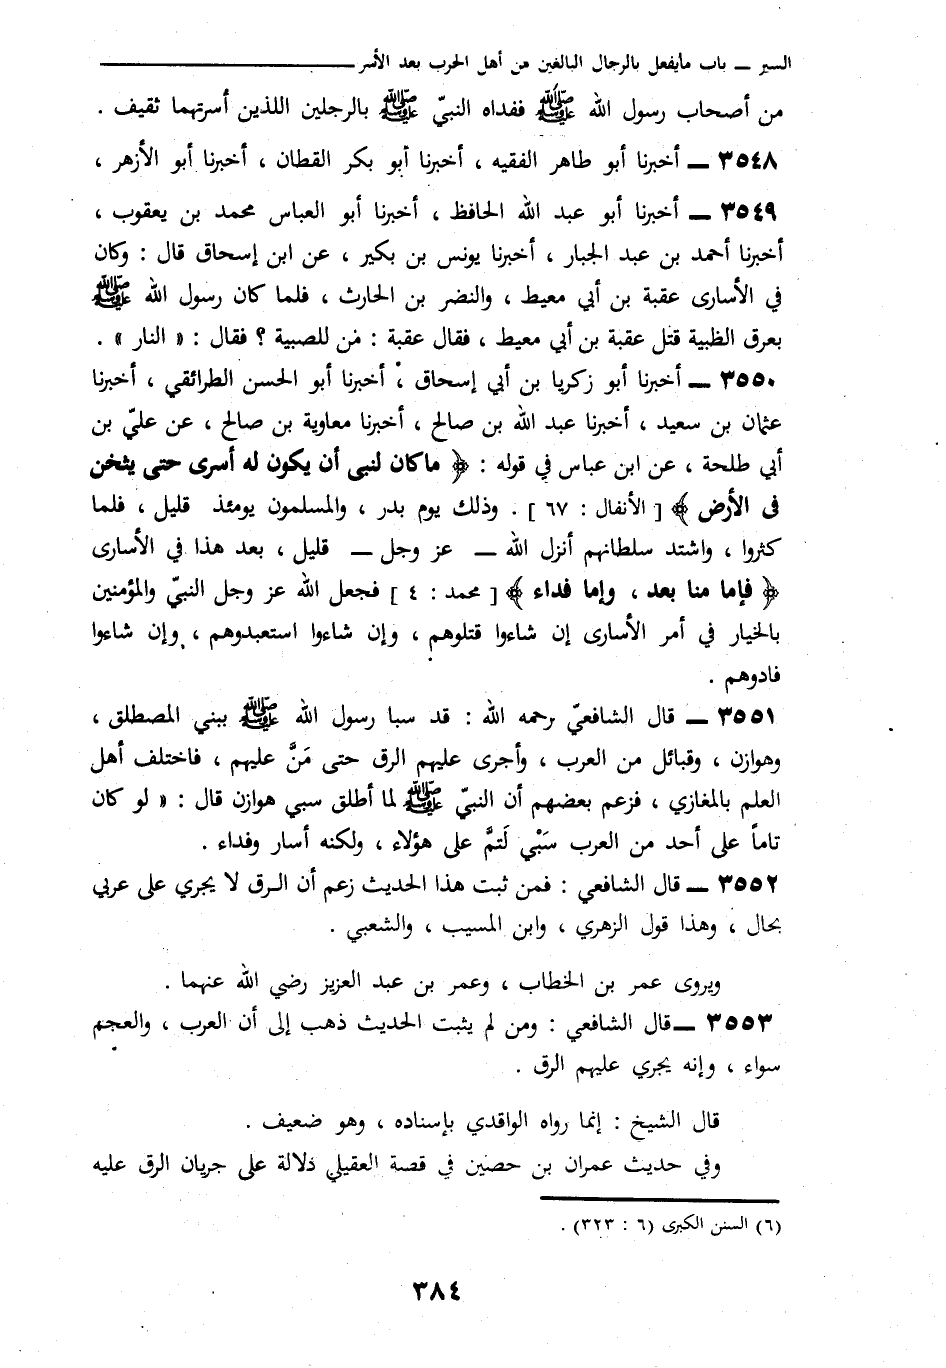 السير ــ باب مايفعل بالرجال البالغين من أهل الحرب بعد الأسر
من أصحاب رسول الله ﷺ ففداه النبيّ ﷺ بالرجلين اللذين أسرتهما ثقيف .
٣٥٤٨ ــ أخبرنا أبو طاهر الفقيه ، أخبرنا أبو بكر القطان ، أخبرنا أبو الأزهر ،
٣٥٤٩ ــ أخبرنا أبو عبد الله الحافظ ، أخبرنا أبو العباس محمد بن يعقوب ،
أخبرنا أحمد بن عبد الجبار ، أخبرنا يونس بن بكير ، عن ابن إسحاق قال : وكان
في الأسارى عقبة بن أبي معيط ، والنضر بن الحارث ، فلما كان رسول الله ﷺ
بعرق الظبية قتل عقبة بن أبي معيط ، فقال عقبة : من للصبية ؟ فقال : « النار » .
٣٥٥٠ ــ أخبرنا أبو زكريا بن أبي إسحاق ، أخبرنا أبو الحسن الطرائقي ، أخبرنا
عثمان بن سعيد ، أخبرنا عبد الله بن صالح ، أخبرنا معاوية بن صالح ، عن عليّ بن
أبي طلحة ، عن ابن عباس في قوله : ﴿ ماكان لنبى أن يكون له أسرى حتى يثخن
فى الأرض ﴾ [ الأنفال : ٦٧ ] . وذلك يوم بدر ، والمسلمون يومئذ قليل ، فلما
كثروا ، واشتد سلطانهم أنزل الله ــ عز وجل ــ قليل ، بعد هذا في الأسارى
﴿ فإما منا بعد ، وإما فداء ﴾ [ محمد : ٤ ] فجعل الله عز وجل النبيّ والمؤمنين
بالخيار في أمر الأسارى إن شاءوا قتلوهم ، وإن شاءوا استعبدوهم ، وإن شاءوا
فادوهم .
٣٥٥١ ــ قال الشافعيّ رحمه الله : قد سبا رسول الله ﷺ ببني المصطلق ،
وهوازن ، وقبائل من العرب ، وأجرى عليهم الرق حتى مَنَّ عليهم ، فاختلف أهل
العلم بالمغازي ، فزعم بعضهم أن النبيّ ﷺ لما أطلق سبي هوازن قال : « لو كان
تاماً على أحد من العرب سَبْي لَتمَّ على هؤلاء ، ولكنه أسار وفداء .
٣٥٥٢ ــ قال الشافعي : فمن ثبت هذا الحديث زعم أن الرق لا يجري على عربي
بحال ، وهذا قول الزهري ، وابن المسيب ، والشعبي .
ويروى عمر بن الخطاب ، وعمر بن عبد العزيز رضي الله عنهما .
٣٥٥٣ ــ قال الشافعي : ومن لم يثبت الحديث ذهب إلى أن العرب ، والعجم
سواء ، وإنه يجري عليهم الرق .
قال الشيخ : إنما رواه الواقدي بإسناده ، وهو ضعيف .
وفي حديث عمران بن حصين في قصة العقيلي دلالة على جريان الرق عليه
(٦) السنن الكبرى (٦ : ٣٢٣) .
٣٨٤